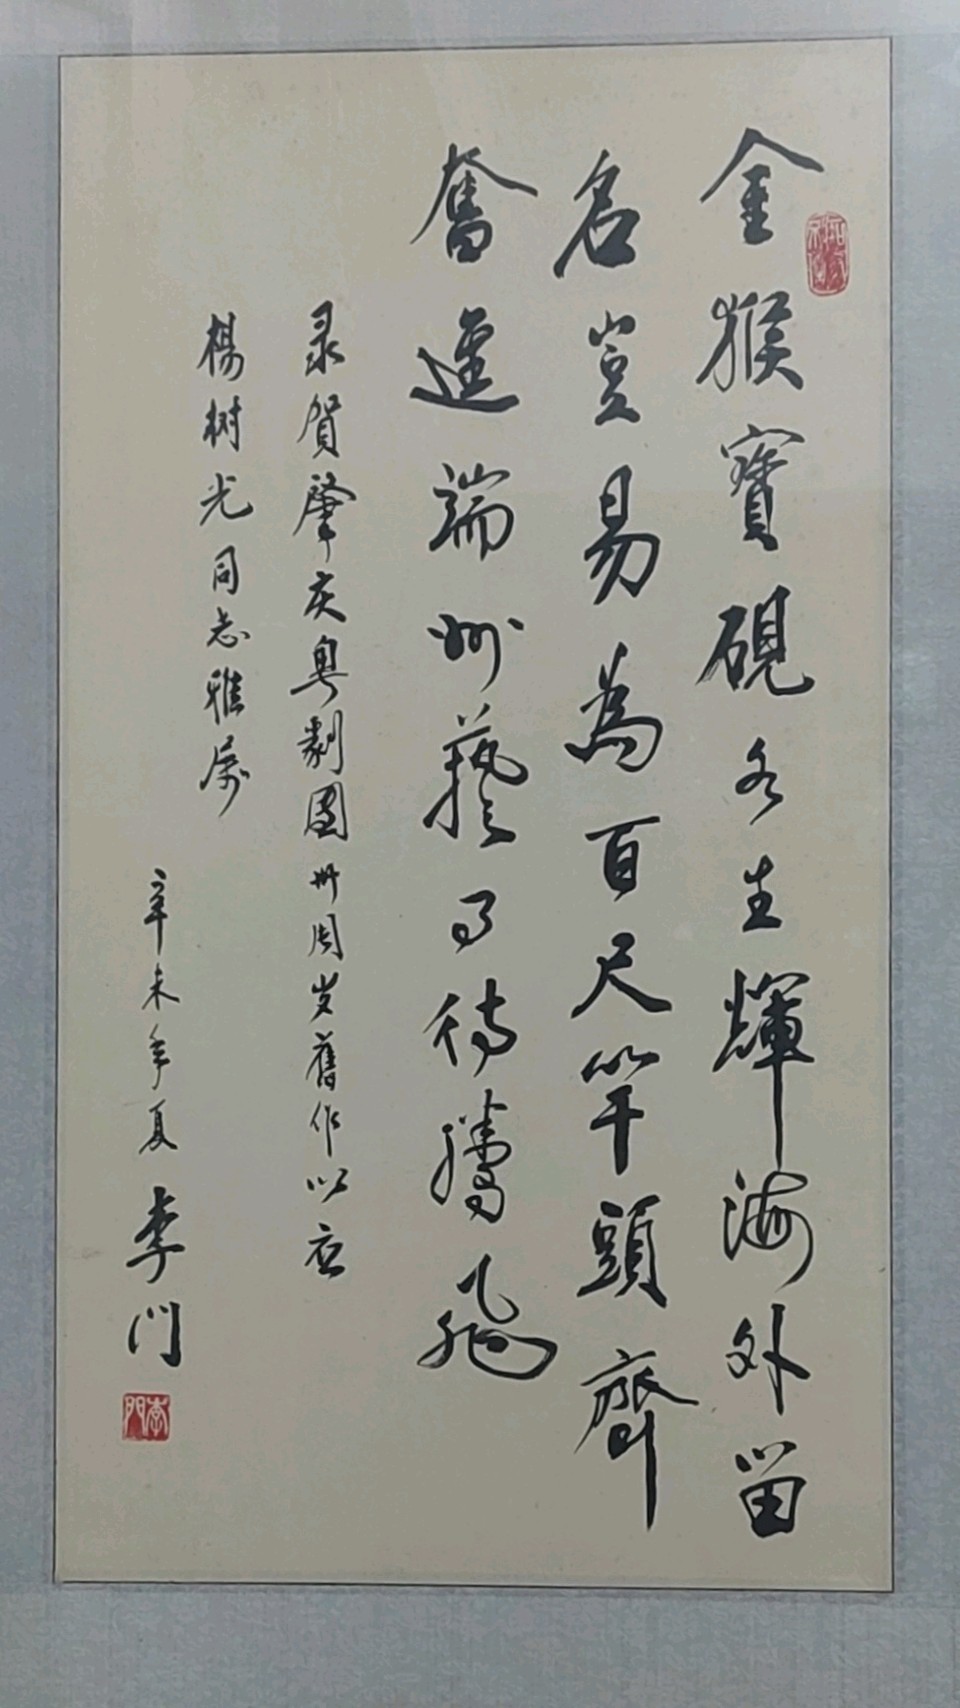 金猴寶硯各生輝海外留
名豈易為百尺竿頭齊
奮進端州藝事待騰飛
录賀肇庆粤劇團卅周岁舊作以应
楊树光同志雅属
辛未年夏 李门
李門